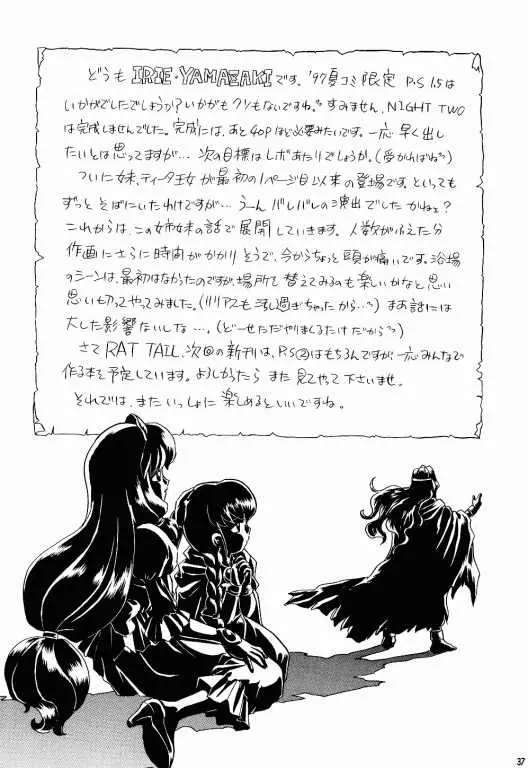 どうも IRIE・YAMAZAKIです。'97夏コミ限定 P.S 1.5は
いかがでしたでしょうか？いかがもクソもないですね。すみません、NIGHT TWO
は完成しませんでした。完成には、あと40Pほど必要みたいです。一応 早く出し
たいとは思ってますが… 次の目標はレボあたりでしょうか。(受かればね)
ついに妹、ティータ王女が最初の1ページ目以来の登場です。といっても
ずっとそばにいたわけですが… うーん バレバレの演出でしたかねェ？
これからは、この姉妹の話で展開していきます。人数がふえた分
作画にさらに時間がかかりそうで、今からちょっと頭が痛いです。浴場
のシーンは、最初はなかったのですが、場所して替えてみるのも楽しいかなと思い
思い切ってやってみました。(リリアスも汚し過ぎちゃったから…) まあ話には
大した影響ないしな…。(どーせただやりまくるだけだから)
さて RAT TAIL. 次の新刊は、P.S②はもちろんですが、一応みんなで
作る本を予定しています。よろしかったら また 見てやって下さいませ。
それでは、またいっしょに楽しめるといいですね。
37